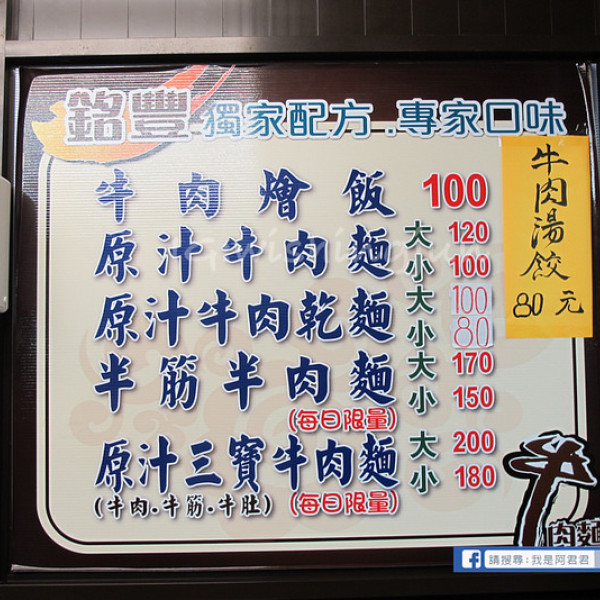 銘豐 獨家配方.專家口味
牛肉燴飯 100
原汁牛肉麵 大 120
小 100
原汁牛肉乾麵 大 100
小 80
半筋半肉麵 大 170
(每日限量) 小 150
原汁三寶牛肉麵 大 200
小 180
(牛肉.牛筋.牛肚) (每日限量)
牛肉湯餃
80元
牛
肉麵
請搜尋:我是阿君君